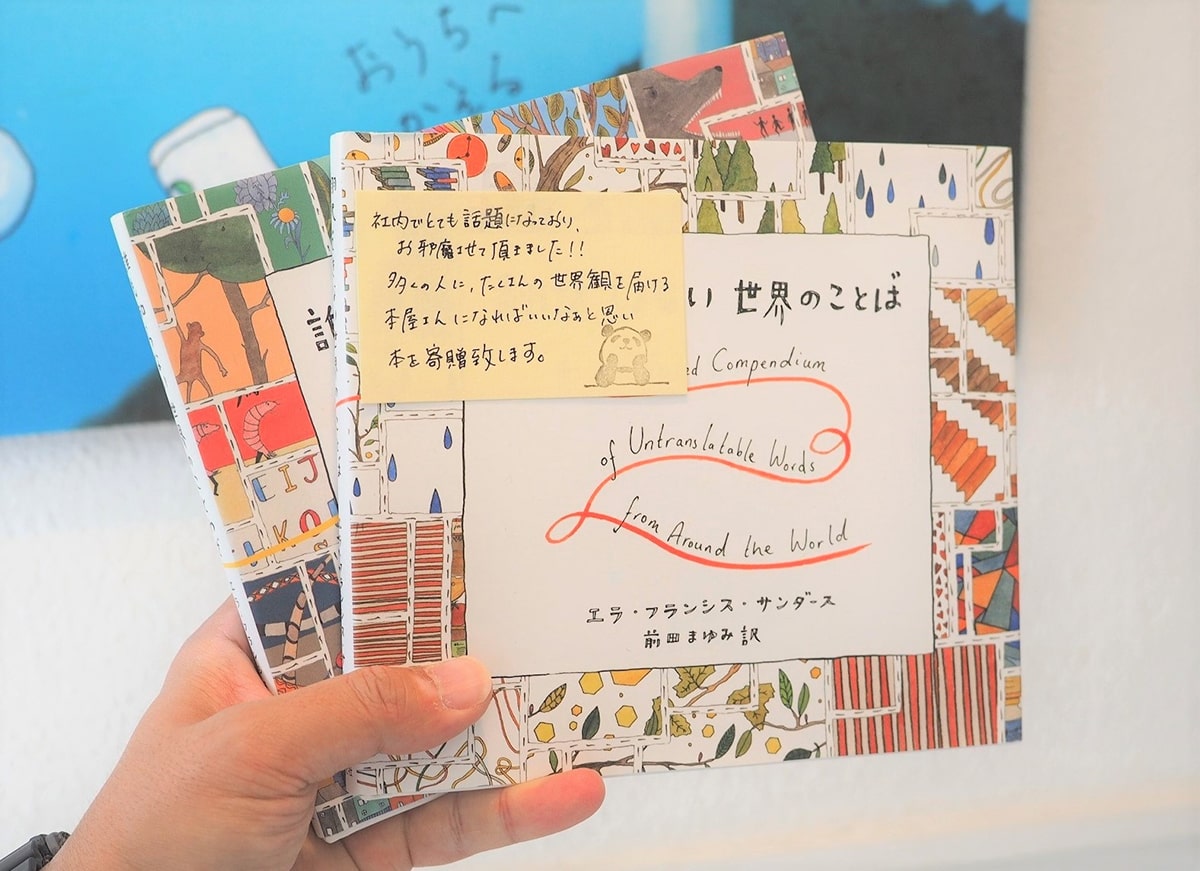 おうちへ
かえる
社内でとても話題になっており、
お邪魔させて頂きました!!
多くの人に、たくさんの世界観を届ける
本屋さんになればいいなぁと思い
本を寄贈致します。
い 世界のことば
ed Compendium
of Untranslatable Words
from Around the World
エラ・フランシス・サンダース
前田まゆみ訳
誰
EIJ
UKO